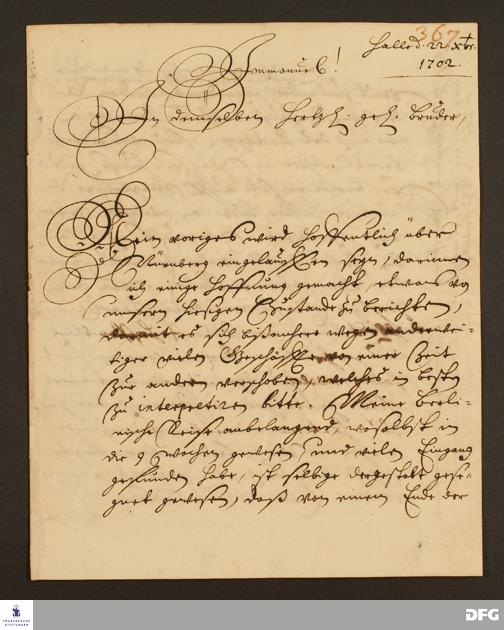 367
Halle d. 22 Xbr.
1702.
Immanuel!
In demselben Hertzl. gel. Bruder,
Mein voriges wird hoffentlich über
Nürnberg eingelauffen seyn, darinnen
ich einige Hoffnung gemacht, etwas von
unserm hiesigen Zustande zu berichten,
womit es sich bißanhero wegen anderwei-
tiger vielen Geschäffte von einer Zeit
zur andern verschoben, welches in besten
zu interpretiren bitte. Meine Berli-
nische Reise anbelangend, woselbst in
die 9 Wochen gewesen, und vielen Eingang
gefunden habe, ist selbige dergestalt gese-
gnet gewesen, daß von einem Ende der
FRANCKESCHE STIFTUNGEN
DFG